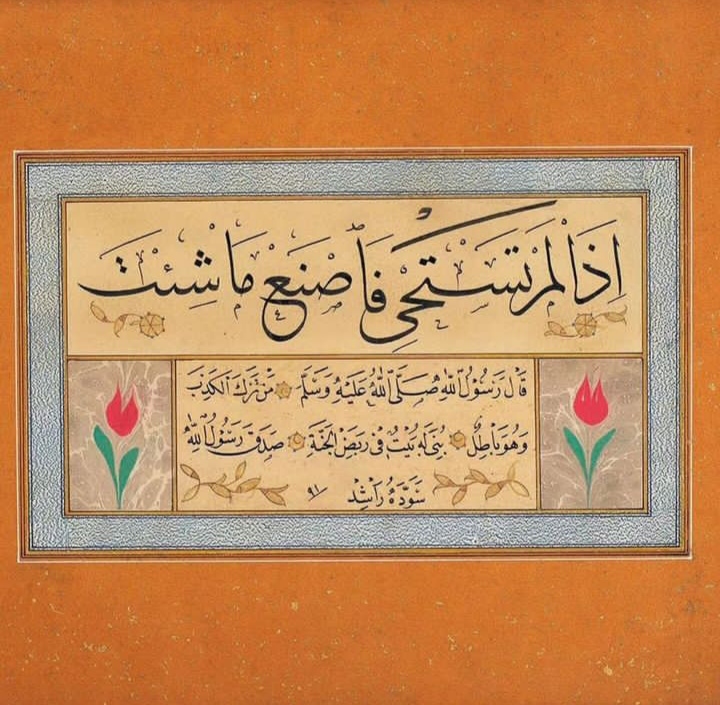 اِذَا لَمْ تَسْتَحْيِ فَاصْنَعْ مَا شِئْتَ
قَالَ رَسُولُ اللّٰهِ صَلَّى اللّٰهُ عَلَيْهِ وَسَلَّمَ مَنْ تَرَكَ الْكَذِبَ
وَهُوَ بَاطِلٌ بُنِيَ لَهُ بَيْتٌ فِي رَبَضِ الْجَنَّةِ صَدَقَ رَسُولُ اللّٰهِ
سَوَّدَهُ رَاشِد ٩١